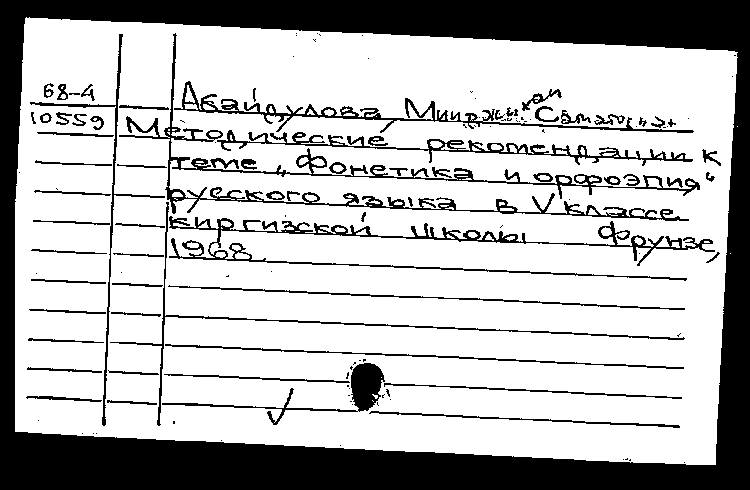 68-4
10559
Абайдулова
Методические рекомендации к
теме „Фонетика и орфоэпия"
русского языка в V классе
киргизской школы Фрунзе,
1968.